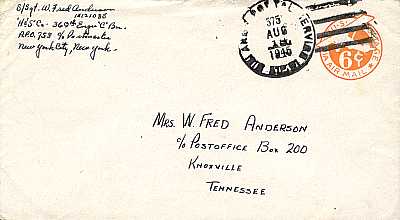 S/Sgt. W. Fred Anderson
"H&S" Co - 360th Engr "C" Bn.
A.P.O. 758 c/o Postmaster
New York City, New York.
ARMY POSTAL SERVICE
375
AUG
1945
U.S. POSTAGE
6¢
VIA AIR MAIL
Mrs. W. Fred Anderson
c/o Postoffice Box 200
Knoxville
Tennessee